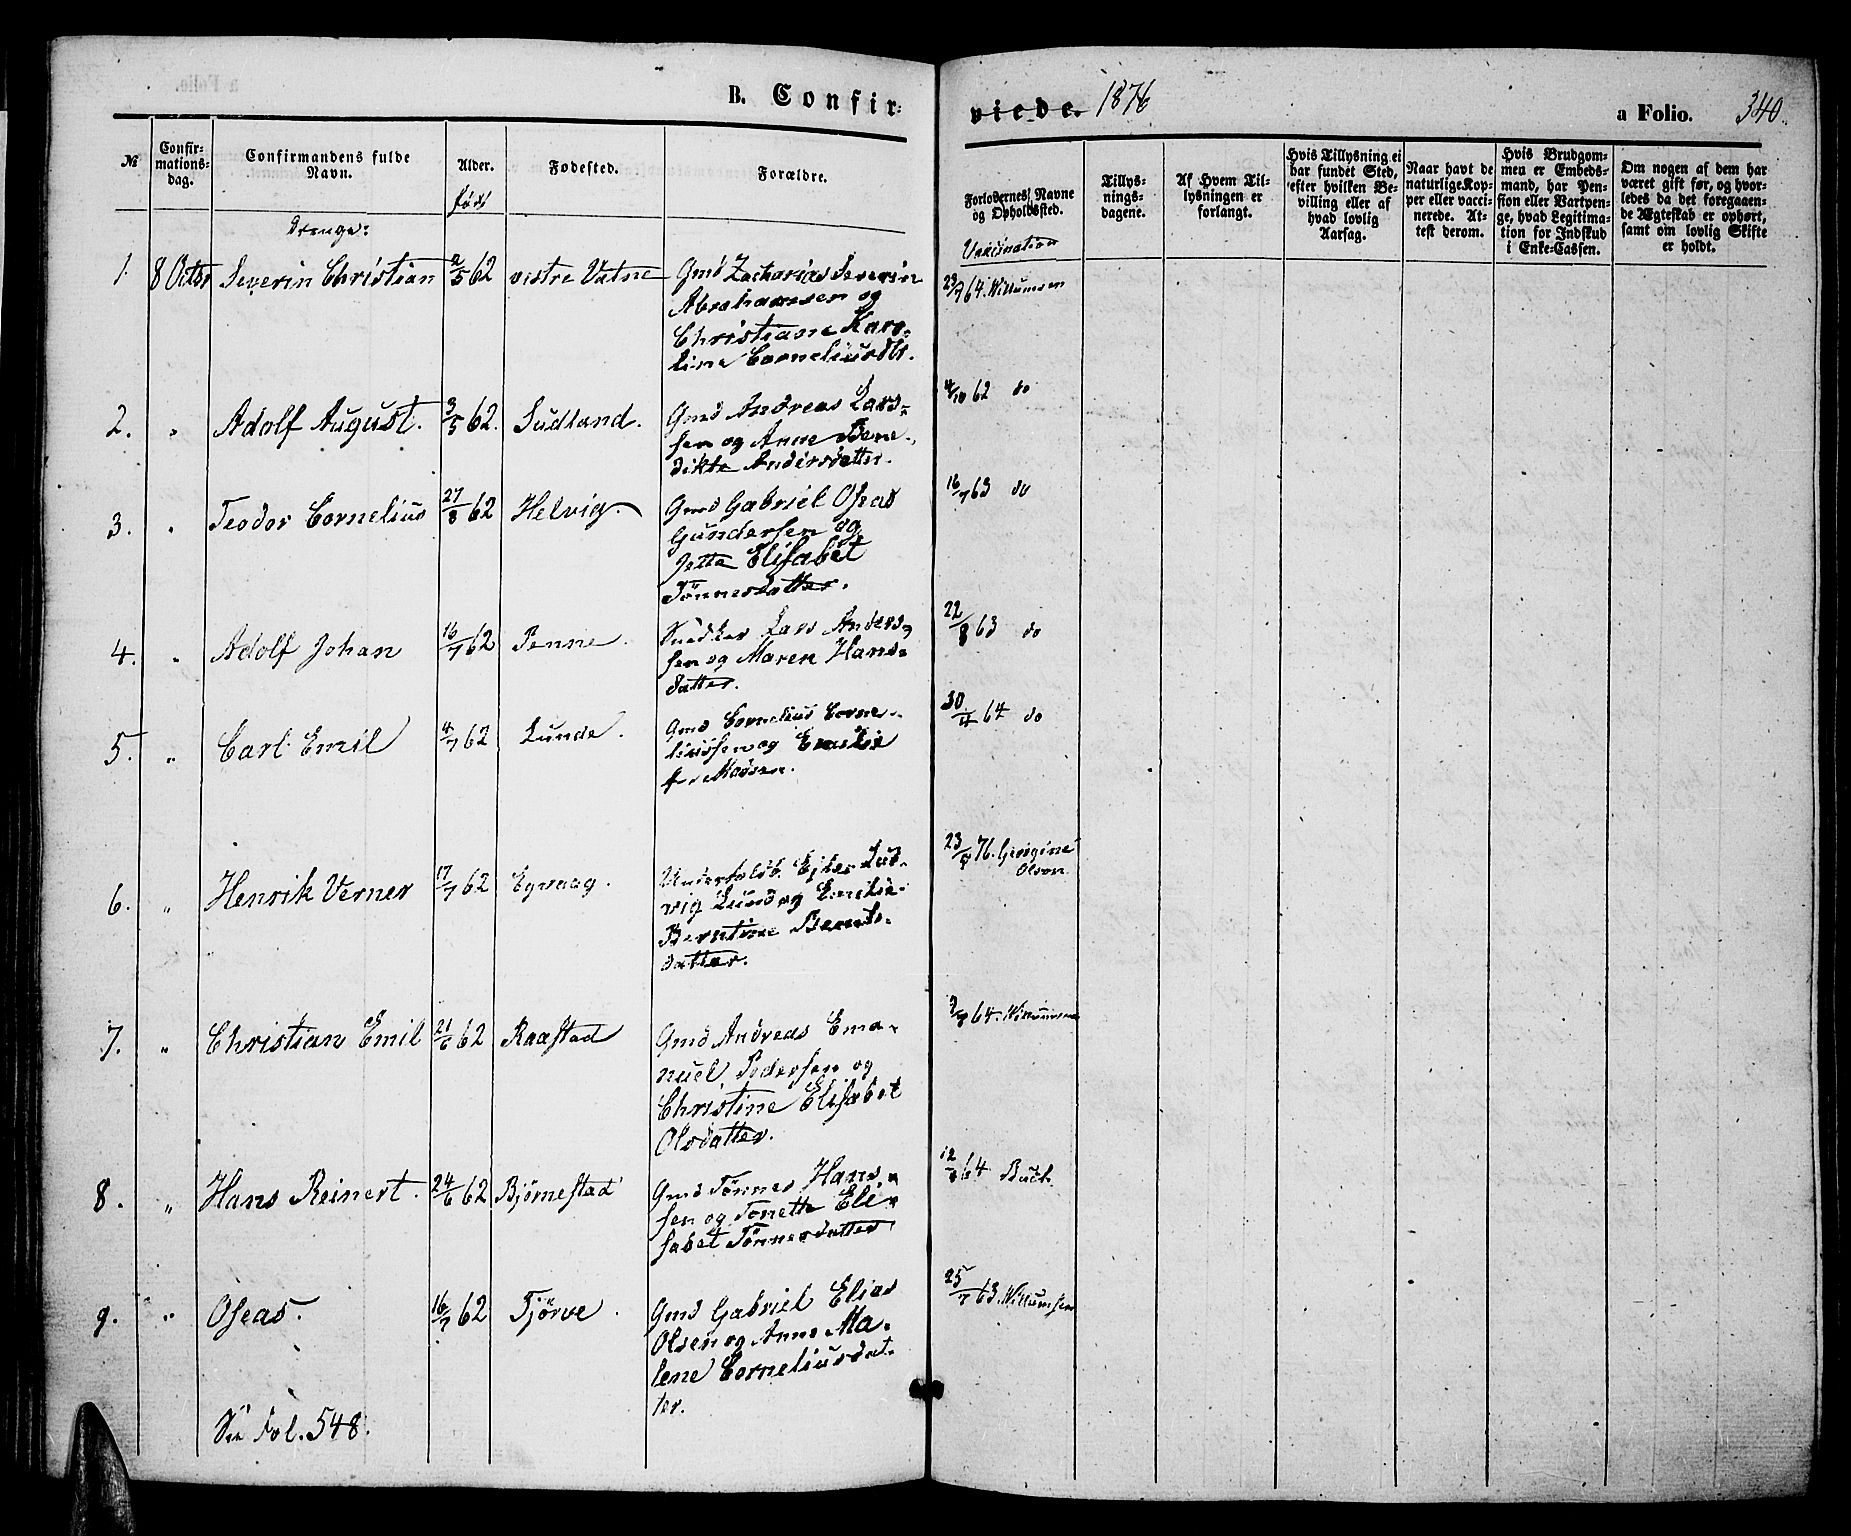 a Folio.
B. Confir-
viede. 1876
a Folio. 340.
№ Confirmationsdag. Confirmandens fulde Navn. Alder. Fødested. Forældre.
født
Forlovernes Navne og Opholdssted. Tillysningsdagene. Af Hvem Tillysningen er forlangt. Hvis Tillysning ei har fundet Sted, efter hvilken Bevilling eller af hvad lovlig Aarsag. Naar havt de naturlige Kopper eller vaccinerede. Attest derom. Hvis Brudgommen er Embedsmand, har Pension eller Vartpenge, hvad Legitimation for Indskud i Enke-Cassen. Om nogen af dem har været gift før, og hvorledes da det foregaaende Ægteskab er ophørt, samt om lovlig Skifte er holdt.
Drenge:
Vaccination
1 8 Octbr Severin Christian 2/5 62 vestre Vatne Gmd Zacharias Severin
Abrahamsen og
Christiane Karo-
line Corneliusdtr.
23/7 64. Willumsen
2. " Adolf August. 3/5 62. Sudland. Gmd Andreas Lars-
sen og Anne Bene-
dikte Andersdatter.
4/10 62 do
3. " Teodor Cornelius 27/8 62 Helvig. Gmd Gabriel Oseas
Gundersen og
Jette Elisabet
Tönnesdatter.
16/7 63 do
4. " Adolf Johan 16/7 62 Penne. Snedker Lars Anders-
sen og Maren Hans-
datter.
22/8 63 do
5. " Carl Emil 4/7 62 Lunde. Gmd Cornelius Corne-
liussen og Emilie
f. Madsen.
30/4 64 do
6. " Henrik Verner 17/7 62 Egvaag. Ejter Lud-
vig Lund og Emilie
Berntine Bernts-
datter.
23/9 76. Georgine
Olson
7. " Christian Emil 21/6 62 Raastad Gmd Andreas Ema-
nuel Pedersen og
Christine Elisabet
Olsdatter.
64. Willumsen
8. " Hans Reinert. 24/6 62 Bjørnestad Gmd Tönnes Hans-
sen og Tonette Eli-
sabet Tönnesdatter
12/6 64 Buch
9. " Oseas. 16/7 62 Tjörve. Gmd Gabriel Elias
Olsen og Anne Ma-
lene Corneliusdat-
ter.
25/7 63. Willumsen
See Fol. 548.